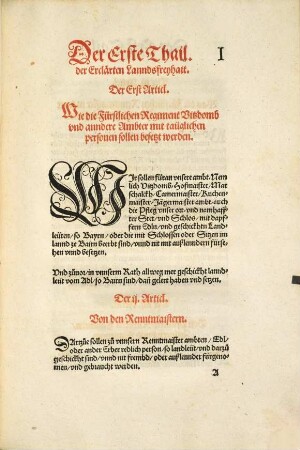 Der Erste Thail. I
der Erclärten Lanndsfreyhait.
Der Erst Articl.
Wie die Fürstlichen Regiment Vitzdomb
vnd anndere Ambter mit tauglichen
personen sollen besetzt werden.
WIr sollen füran vnsere ambt. Nem
lich Vitzdomb/ Hofmaister/ Mar
schalckh/ Camermaister/ Kuchen
maister/ Jägermaister ambt. auch
die Pfleg vnser ort/ vnd nemhaff
ter Stet/ vnd Schlos/ mit dapf
fern Edln/ vnd geschickhten Land
leüten/ so Bayrn/ oder die mit Schlossern oder Sitzen im
lannd ze Bairn beerbt sind/ vnnd nit mit auslenndern fürse
hen vnnd besetzen.
Vnd zuuor/ in vnnserm Rath allweg mer geschickht lannd
leüt vom Adl/ so Bairn sind/ dan gelert haben vnd setzen.
Der ij. Articl.
Von den Renntmaistern.
DArzue sollen zu vnnsern Renntmaister ambten/ Edl/
oder ander Erber redlich person/ so landleüt/ vnd darzu
geschickht sind/ vnnd nit frembd/ oder auslennder fürgeno
men/ vnd gebraucht werden.
A